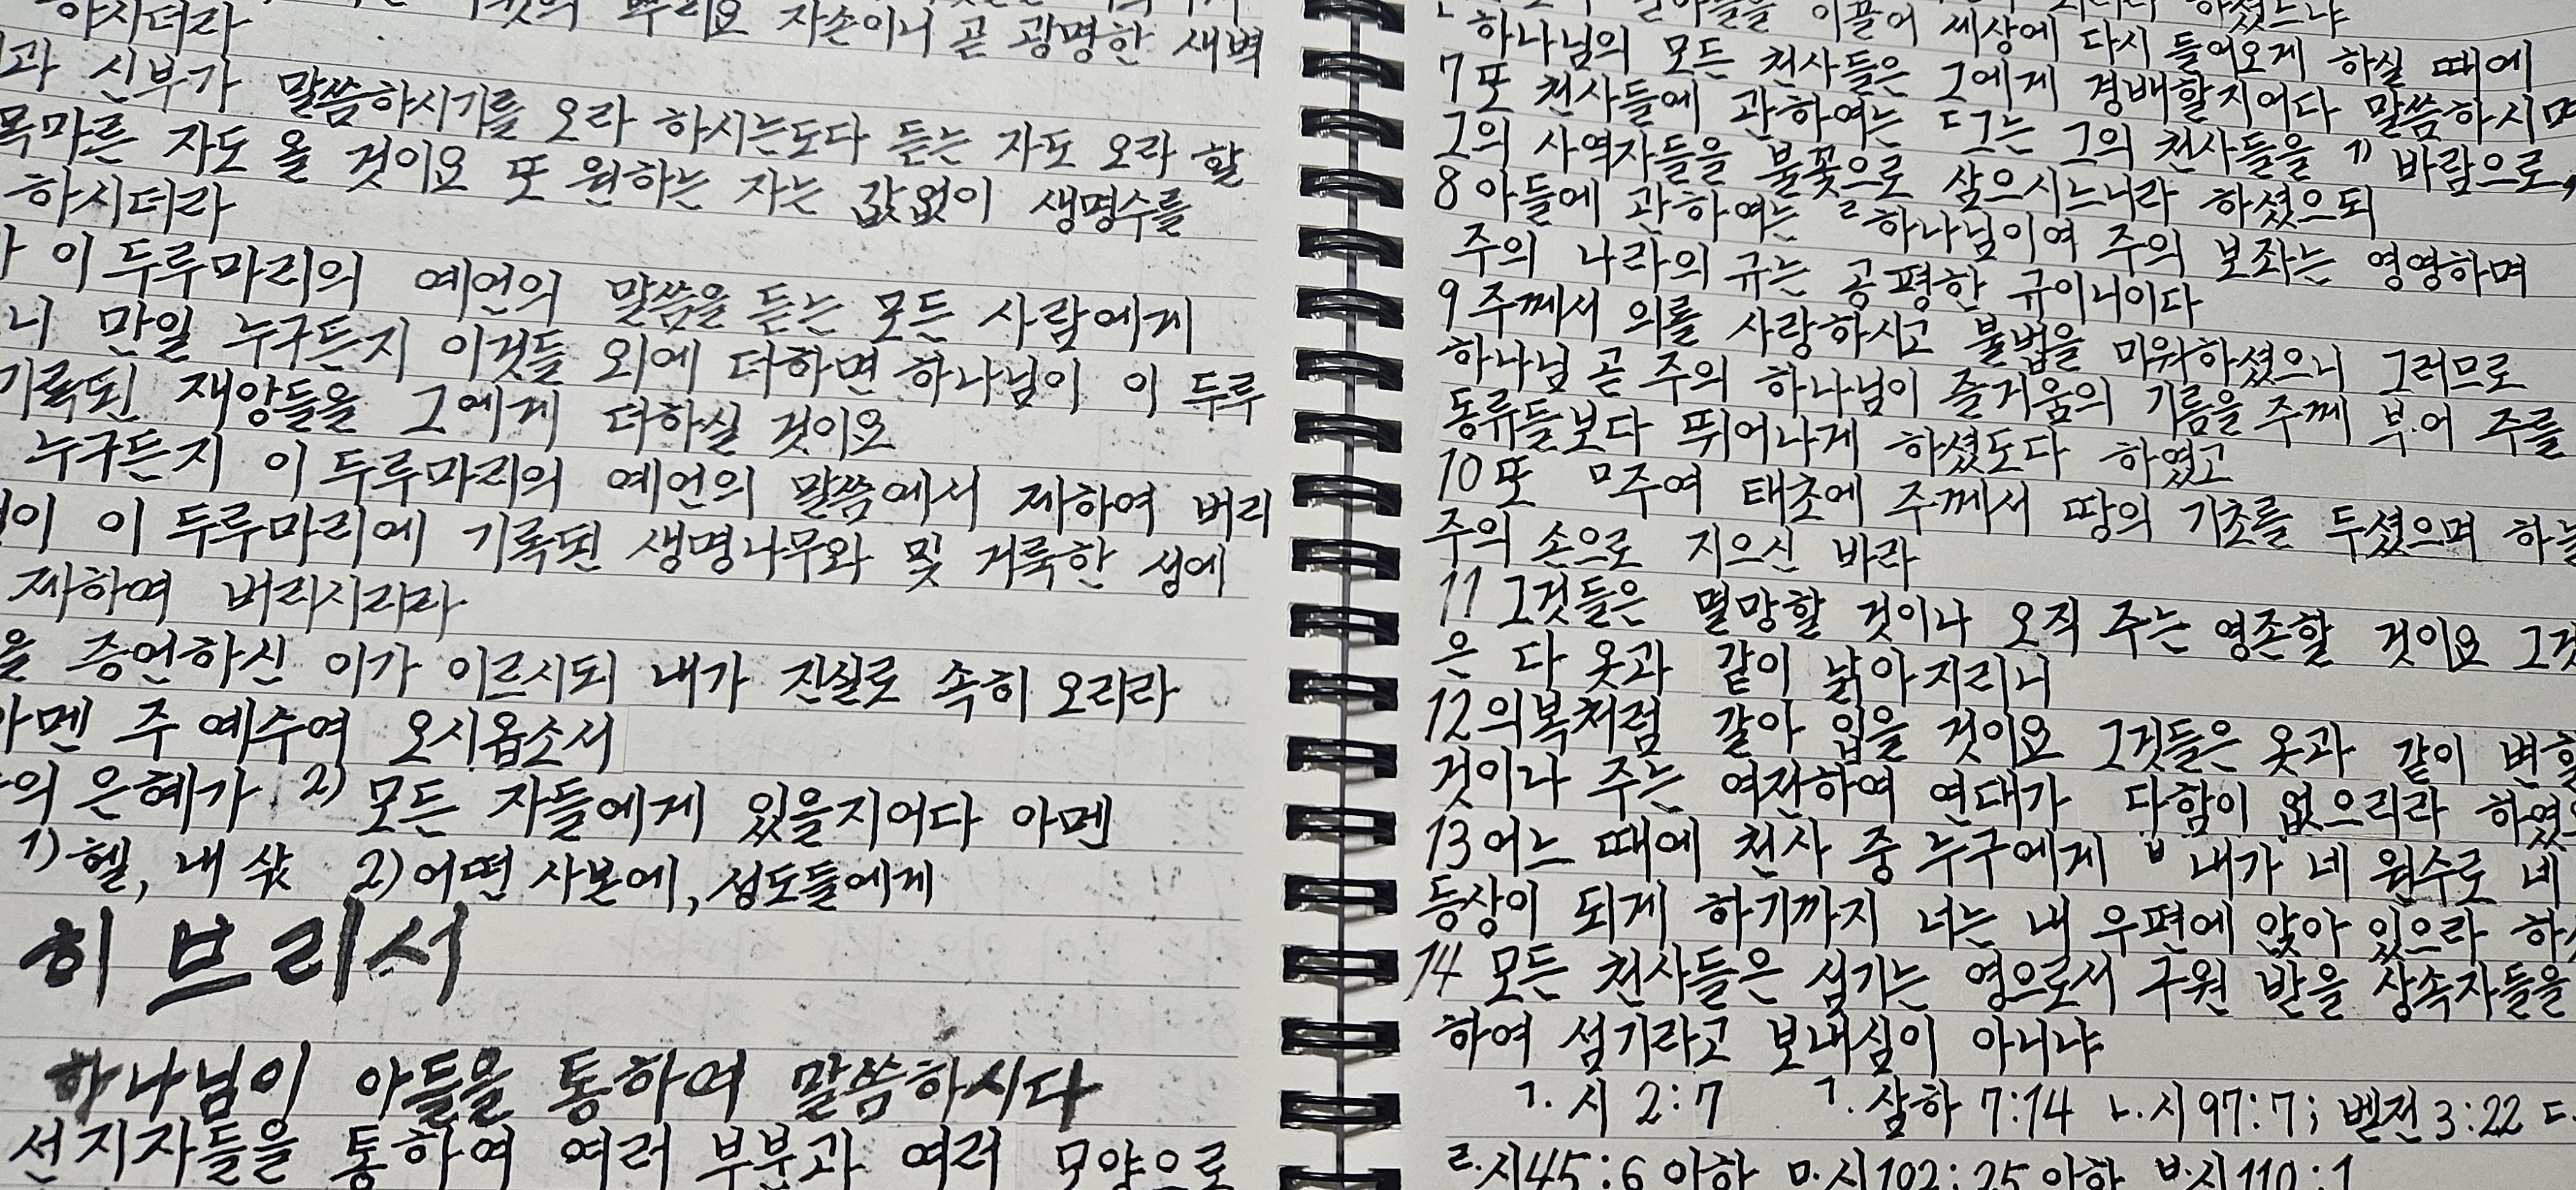 하시더라
뿌리요 자손이니 곧 광명한 새벽
과 신부가 말씀하시기를 오라 하시는도다 듣는 자도 오라 할
목마른 자도 올 것이요 또 원하는 자는 값없이 생명수를
하시더라
이 두루마리의 예언의 말씀을 듣는 모든 사람에게
니 만일 누구든지 이것들 외에 더하면 하나님이 이 두루
기록된 재앙들을 그에게 더하실 것이요
누구든지 이 두루마리의 예언의 말씀에서 제하여 버리
이 이 두루마리에 기록된 생명나무와 및 거룩한 성에
제하여 버리시리라
을 증언하신 이가 이르시되 내가 진실로 속히 오리라
아멘 주 예수여 오시옵소서
의 은혜가 2) 모든 자들에게 있을지어다 아멘
1) 헬, 내 삯 2) 어떤 사본에, 성도들에게
히브리서
하나님이 아들을 통하여 말씀하시다
선지자들을 통하여 여러 부분과 여러 모양으로
이끌어 세상에 다시 들어오게 하실 때에
하나님의 모든 천사들은 그에게 경배할지어다 말씀하시며
7 또 천사들에 관하여는 ㄷ그는 그의 천사들을 1) 바람으로,
그의 사역자들을 불꽃으로 삼으시느니라 하셨으되
8 아들에 관하여는 ㄹ하나님이여 주의 보좌는 영영하며
주의 나라의 규는 공평한 규이니이다
9 주께서 의를 사랑하시고 불법을 미워하셨으니 그러므로
하나님 곧 주의 하나님이 즐거움의 기름을 주께 부어 주를
동류들보다 뛰어나게 하셨도다 하였고
10 또 ㅁ주여 태초에 주께서 땅의 기초를 두셨으며 하늘
주의 손으로 지으신 바라
11 그것들은 멸망할 것이나 오직 주는 영존할 것이요 그것
은 다 옷과 같이 낡아지리니
12 의복처럼 갈아 입을 것이요 그것들은 옷과 같이 변할
것이나 주는 여전하여 연대가 다함이 없으리라 하였
13 어느 때에 천사 중 누구에게 ㅂ 내가 네 원수로 네
등상이 되게 하기까지 너는 내 우편에 앉아 있으라 하
14 모든 천사들은 섬기는 영으로서 구원 받을 상속자들을
하여 섬기라고 보내심이 아니냐
ㄱ. 시 2:7 ㄱ. 삼하 7:14 ㄴ. 시 97:7; 벧전 3:22 ㄷ
ㄹ. 시 45:6 이하 ㅁ. 시 102:25 이하 ㅂ. 시 110:1